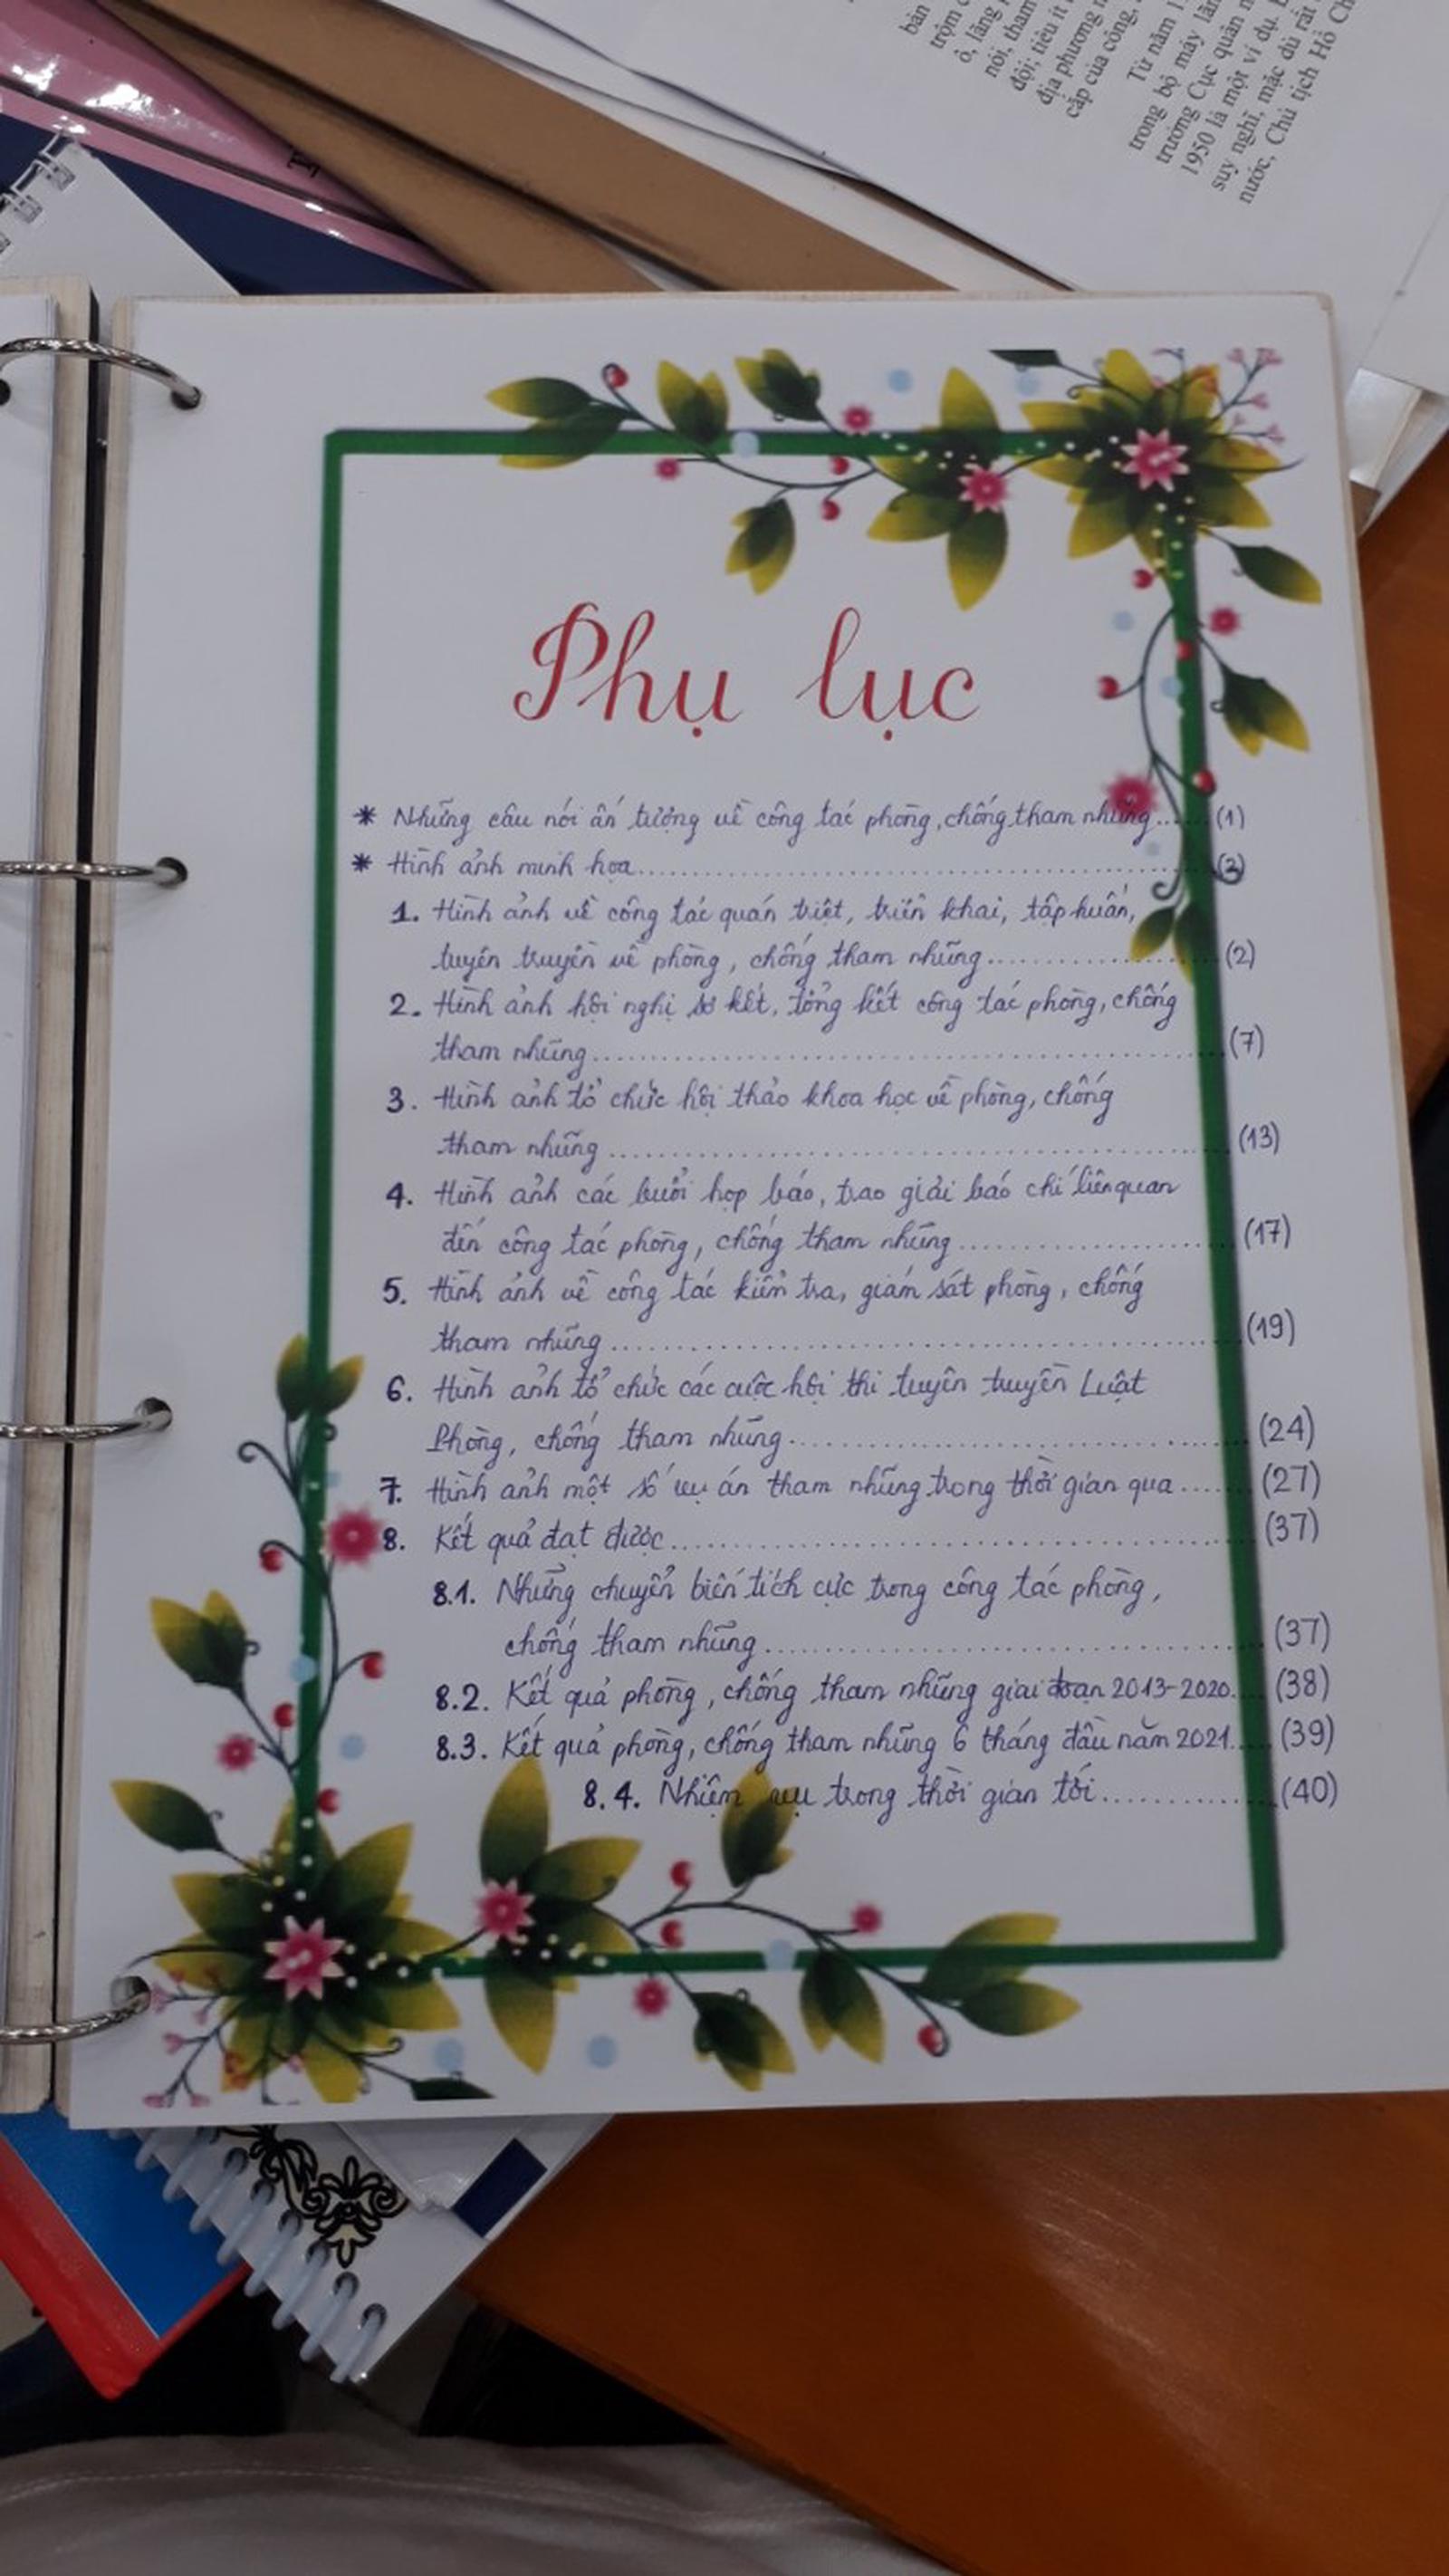 bản
trộm c
ô, lãng
nói, tham
đội; tiêu ít
địa phương n
cắp của công,
Từ năm 1
trong bộ máy lãn
trưởng Cục quân n
1950 là một ví dụ. B
suy nghĩ, mặc dù rất
nước, Chủ tịch Hồ Ch
Phụ lục
* Những câu nói ấn tượng về công tác phòng, chống tham nhũng...... (1)
* Hình ảnh minh họa........................................ (2)
1. Hình ảnh về công tác quán triệt, triển khai, tập huấn,
tuyên truyền về phòng, chống tham nhũng.................. (2)
2. Hình ảnh hội nghị sơ kết, tổng kết công tác phòng, chống
tham nhũng........................................ (7)
3. Hình ảnh tổ chức hội thảo khoa học về phòng, chống
tham nhũng........................................ (13)
4. Hình ảnh các buổi họp báo, trao giải báo chí liên quan
đến công tác phòng, chống tham nhũng.................. (17)
5. Hình ảnh về công tác kiểm tra, giám sát phòng, chống
tham nhũng........................................ (19)
6. Hình ảnh tổ chức các cuộc hội thi tuyên truyền Luật
Phòng, chống tham nhũng.............................. (24)
7. Hình ảnh một số vụ án tham nhũng trong thời gian qua...... (27)
8. Kết quả đạt được........................................ (37)
8.1. Những chuyển biến tích cực trong công tác phòng,
chống tham nhũng.............................. (37)
8.2. Kết quả phòng, chống tham nhũng giai đoạn 2013-2020.... (38)
8.3. Kết quả phòng, chống tham nhũng 6 tháng đầu năm 2021.... (39)
8.4. Nhiệm vụ trong thời gian tới.............. (40)